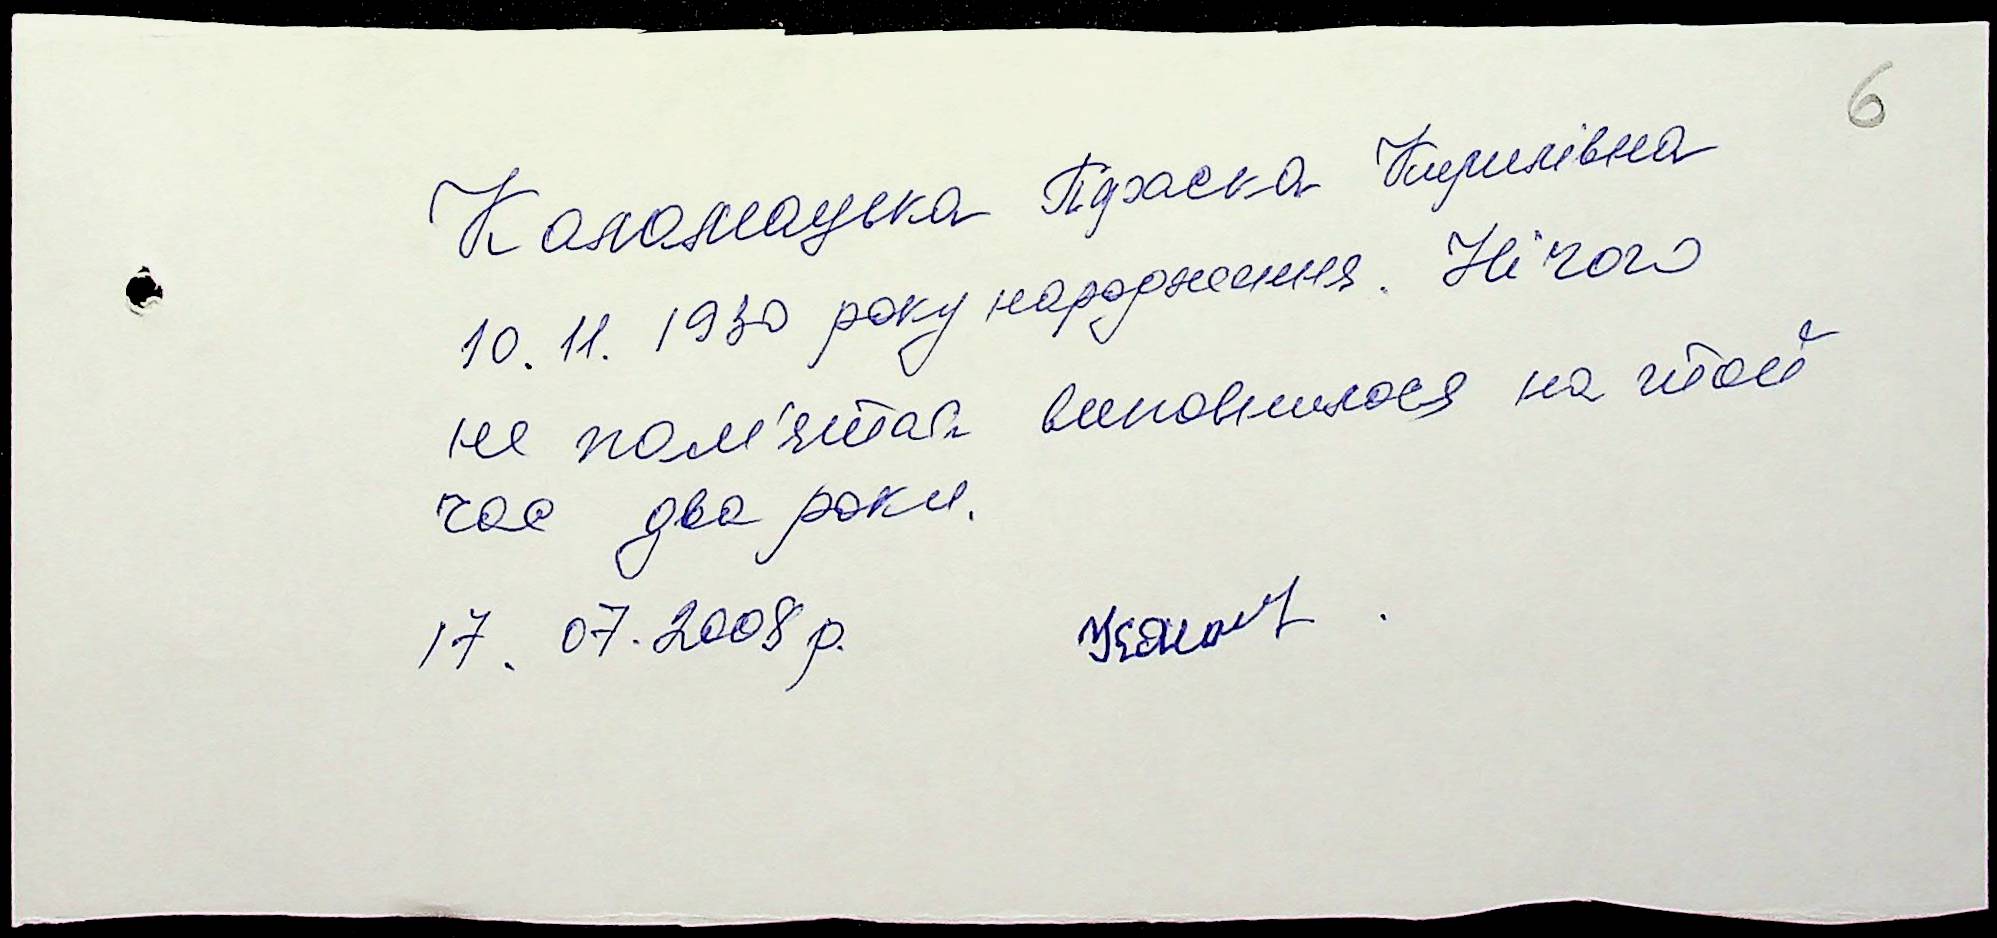 6
Каламацька Параска Кирилівна
10.11.1930 року народження. Нічого
не пам'ятаю виповнилося на той
час два роки.
17.07.2008 р.